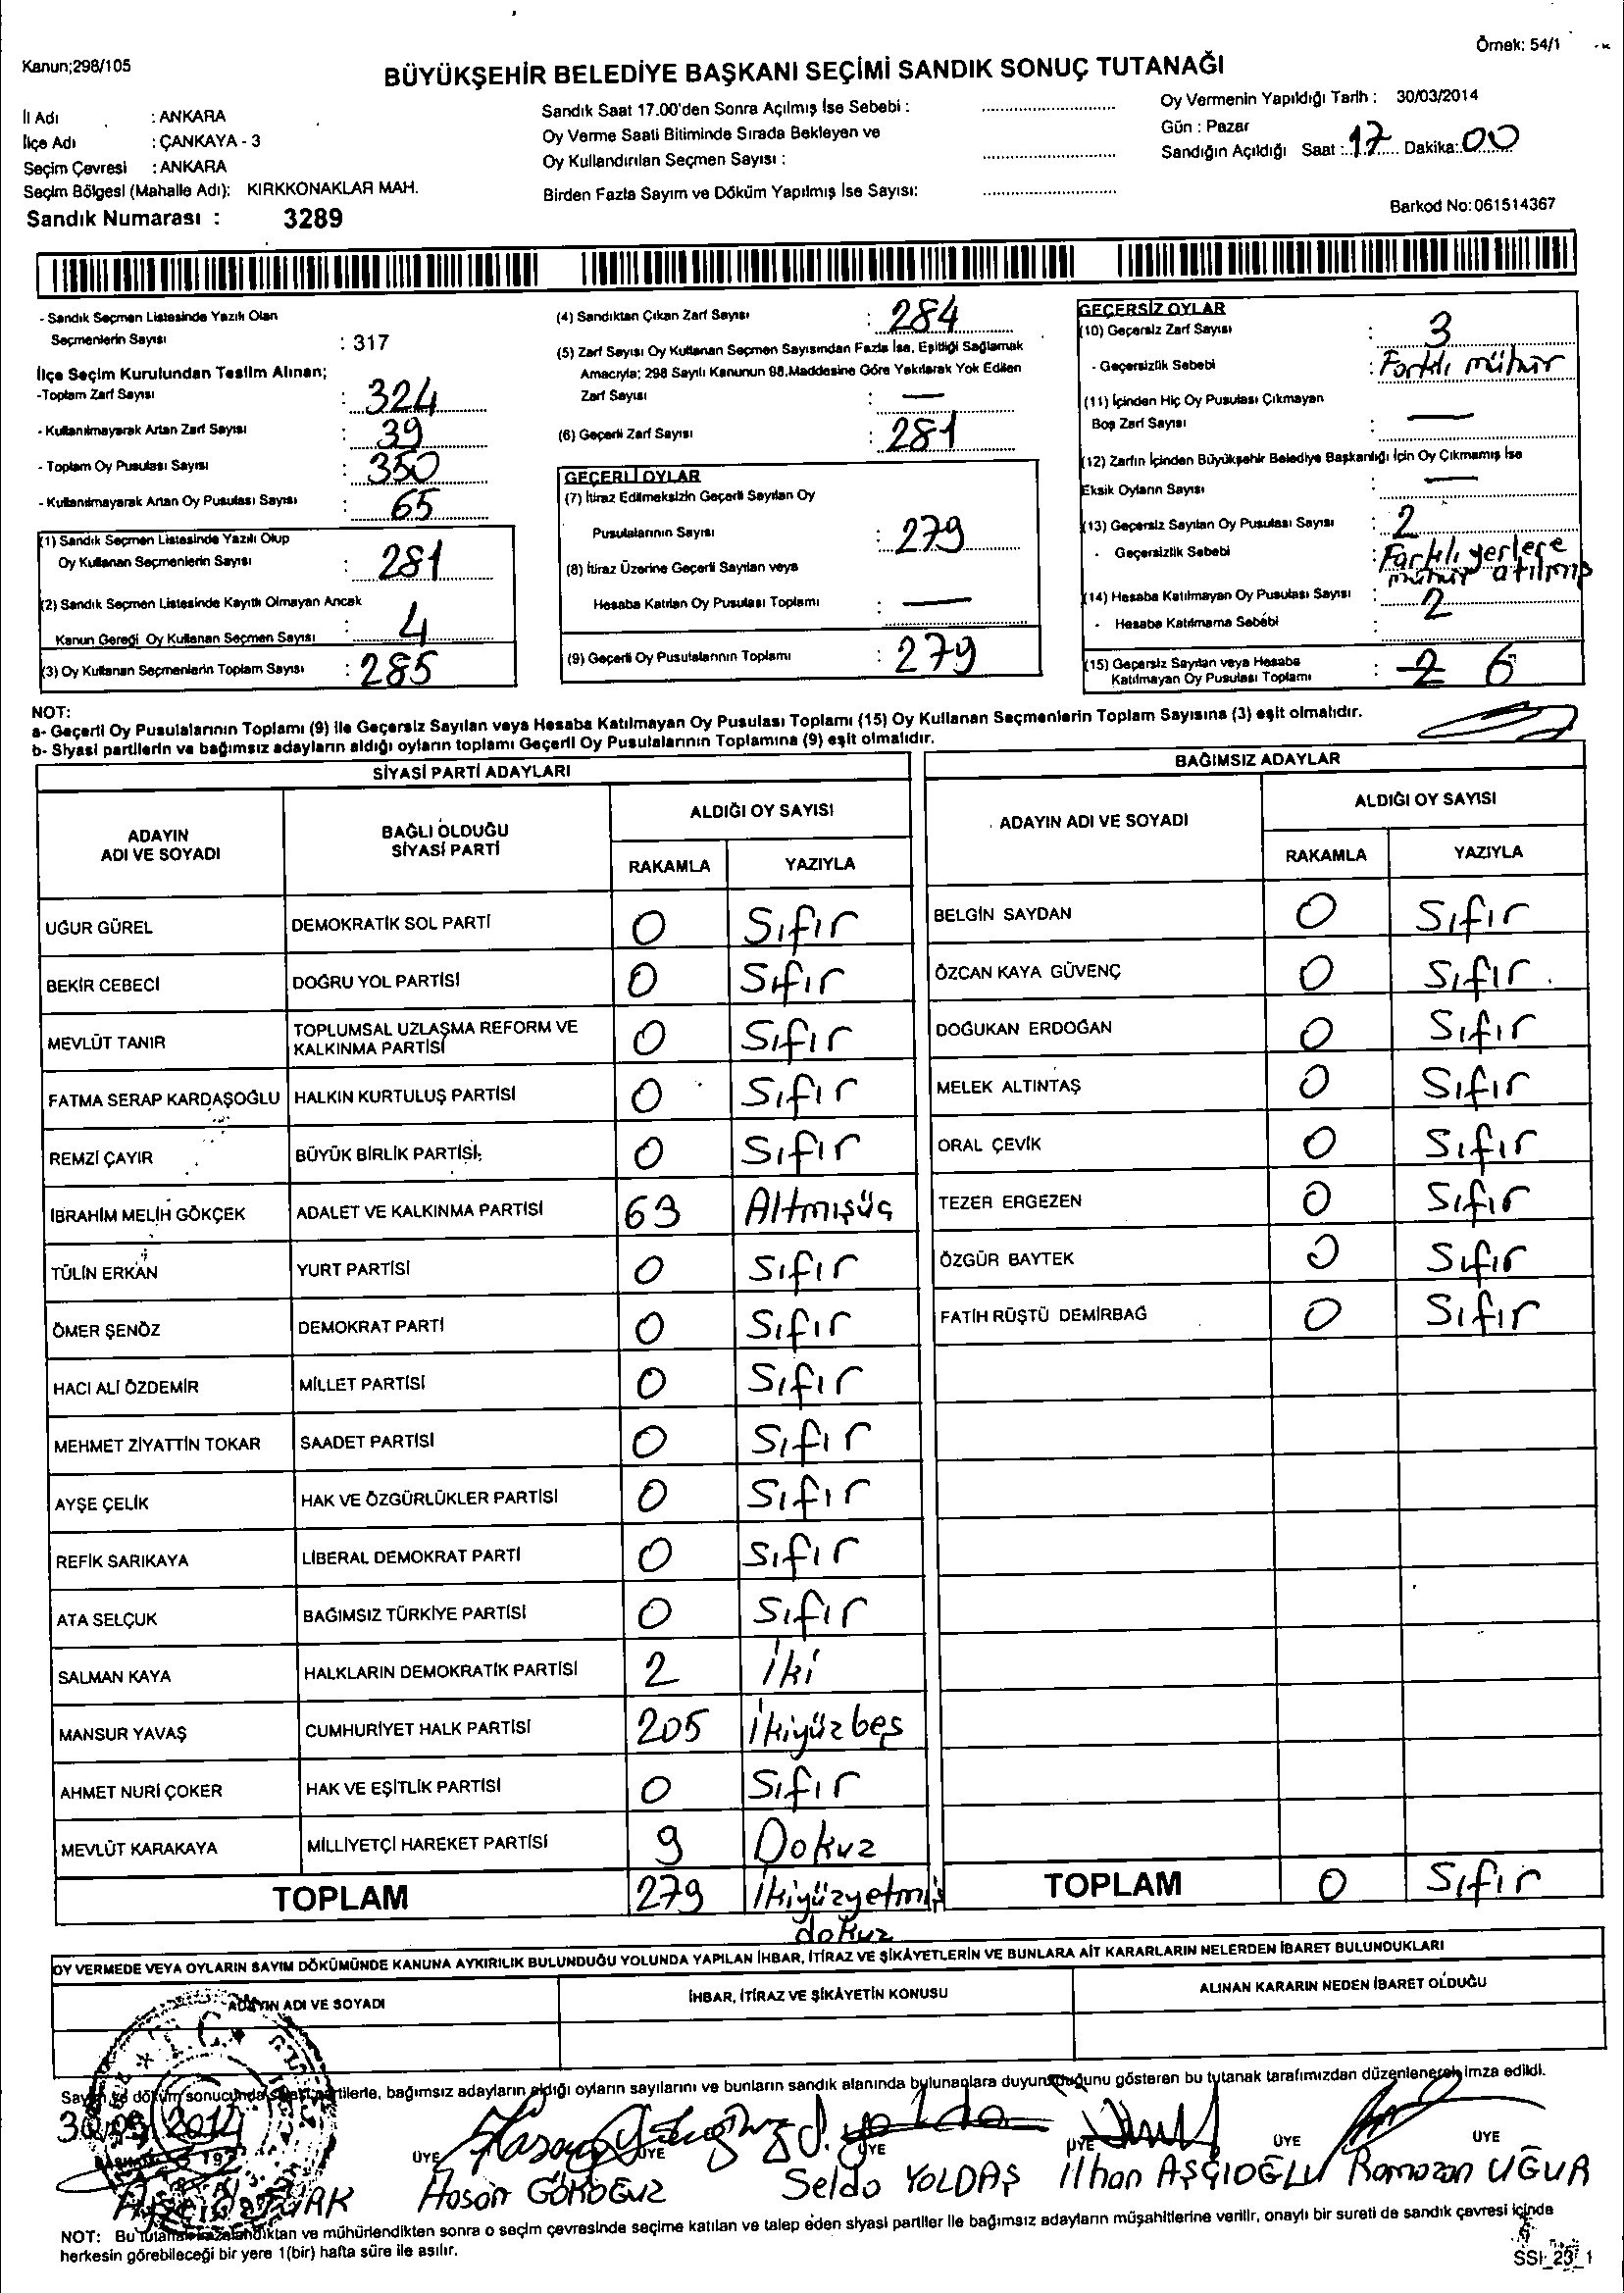 Örnek: 54/1
Kanun;298/105
BÜYÜKŞEHİR BELEDİYE BAŞKANI SEÇİMİ SANDIK SONUÇ TUTANAĞI
İl Adı : ANKARA
İlçe Adı : ÇANKAYA - 3
Seçim Çevresi : ANKARA
Seçim Bölgesi (Mahalle Adı): KIRKKONAKLAR MAH.
Sandık Numarası : 3289
Sandık Saat 17.00'den Sonra Açılmış İse Sebebi :
Oy Verme Saati Bitiminde Sırada Bekleyen ve
Oy Kullandırılan Seçmen Sayısı :
Birden Fazla Sayım ve Döküm Yapılmış İse Sayısı:
Oy Vermenin Yapıldığı Tarih : 30/03/2014
Gün : Pazar
Sandığın Açıldığı Saat : 17 Dakika: 00
Barkod No: 061514367
- Sandık Seçmen Listesinde Yazılı Olan
Seçmenlerin Sayısı : 317
İlçe Seçim Kurulundan Teslim Alınan;
-Toplam Zarf Sayısı : 324
- Kullanılmayarak Artan Zarf Sayısı : 39
- Toplam Oy Pusulası Sayısı : 350
- Kullanılmayarak Artan Oy Pusulası Sayısı : 65
(1) Sandık Seçmen Listesinde Yazılı Olup
Oy Kullanan Seçmenlerin Sayısı : 281
(2) Sandık Seçmen Listesinde Kayıtlı Olmayan Ancak
Kanun Gereği Oy Kullanan Seçmen Sayısı : 4
(3) Oy Kullanan Seçmenlerin Toplam Sayısı : 285
(4) Sandıktan Çıkan Zarf Sayısı : 284
(5) Zarf Sayısı Oy Kullanan Seçmen Sayısından Fazla İse, Eşitliği Sağlamak
Amacıyla; 298 Sayılı Kanunun 98.Maddesine Göre Yakılarak Yok Edilen
Zarf Sayısı : —
(6) Geçerli Zarf Sayısı : 281
GEÇERLİ OYLAR
(7) İtiraz Edilmeksizin Geçerli Sayılan Oy
Pusulalarının Sayısı : 279
(8) İtiraz Üzerine Geçerli Sayılan veya
Hesaba Katılan Oy Pusulası Toplamı : —
(9) Geçerli Oy Pusulalarının Toplamı : 279
GEÇERSİZ OYLAR
(10) Geçersiz Zarf Sayısı : 3
- Geçersizlik Sebebi : Farklı mühür
(11) İçinden Hiç Oy Pusulası Çıkmayan
Boş Zarf Sayısı : —
(12) Zarfın İçinden Büyükşehir Belediye Başkanlığı İçin Oy Çıkmamış İse
Eksik Oyların Sayısı : —
(13) Geçersiz Sayılan Oy Pusulası Sayısı : 2
- Geçersizlik Sebebi : Farklı yerlere
mühür atılmış
(14) Hesaba Katılmayan Oy Pusulası Sayısı : 2
- Hesaba Katılmama Sebebi :
(15) Geçersiz Sayılan veya Hesaba
Katılmayan Oy Pusulası Toplamı : 2 6
NOT:
a- Geçerli Oy Pusulalarının Toplamı (9) ile Geçersiz Sayılan veya Hesaba Katılmayan Oy Pusulası Toplamı (15) Oy Kullanan Seçmenlerin Toplam Sayısına (3) eşit olmalıdır.
b- Siyasi partilerin ve bağımsız adayların aldığı oyların toplamı Geçerli Oy Pusulalarının Toplamına (9) eşit olmalıdır.
SİYASİ PARTİ ADAYLARI
ADAYIN ADI VE SOYADI BAĞLI OLDUĞU SİYASİ PARTİ ALDIĞI OY SAYISI
RAKAMLA YAZIYLA
UĞUR GÜREL DEMOKRATİK SOL PARTİ 0 Sıfır
BEKİR CEBECİ DOĞRU YOL PARTİSİ 0 Sıfır
MEVLÜT TANIR TOPLUMSAL UZLAŞMA REFORM VE KALKINMA PARTİSİ 0 Sıfır
FATMA SERAP KARDAŞOĞLU HALKIN KURTULUŞ PARTİSİ 0 Sıfır
REMZİ ÇAYIR BÜYÜK BİRLİK PARTİSİ 0 Sıfır
İBRAHİM MELİH GÖKÇEK ADALET VE KALKINMA PARTİSİ 63 Altmışüç
TÜLİN ERKAN YURT PARTİSİ 0 Sıfır
ÖMER ŞENÖZ DEMOKRAT PARTİ 0 Sıfır
HACI ALİ ÖZDEMİR MİLLET PARTİSİ 0 Sıfır
MEHMET ZİYATTİN TOKAR SAADET PARTİSİ 0 Sıfır
AYŞE ÇELİK HAK VE ÖZGÜRLÜKLER PARTİSİ 0 Sıfır
REFİK SARIKAYA LİBERAL DEMOKRAT PARTİ 0 Sıfır
ATA SELÇUK BAĞIMSIZ TÜRKİYE PARTİSİ 0 Sıfır
SALMAN KAYA HALKLARIN DEMOKRATİK PARTİSİ 2 İki
MANSUR YAVAŞ CUMHURİYET HALK PARTİSİ 205 İkiyüzbeş
AHMET NURİ ÇOKER HAK VE EŞİTLİK PARTİSİ 0 Sıfır
MEVLÜT KARAKAYA MİLLİYETÇİ HAREKET PARTİSİ 9 Dokuz
TOPLAM 279 İkiyüzyetmiş
dokuz
BAĞIMSIZ ADAYLAR
ADAYIN ADI VE SOYADI ALDIĞI OY SAYISI
RAKAMLA YAZIYLA
BELGİN SAYDAN 0 Sıfır
ÖZCAN KAYA GÜVENÇ 0 Sıfır
DOĞUKAN ERDOĞAN 0 Sıfır
MELEK ALTINTAŞ 0 Sıfır
ORAL ÇEVİK 0 Sıfır
TEZER ERGEZEN 0 Sıfır
ÖZGÜR BAYTEK 0 Sıfır
FATİH RÜŞTÜ DEMİRBAĞ 0 Sıfır
TOPLAM 0 Sıfır
OY VERMEDE VEYA OYLARIN SAYIM DÖKÜMÜNDE KANUNA AYKIRILIK BULUNDUĞU YOLUNDA YAPILAN İHBAR, İTİRAZ VE ŞİKÂYETLERİN VE BUNLARA AİT KARARLARIN NELERDEN İBARET BULUNDUKLARI
ADAYIN ADI VE SOYADI İHBAR, İTİRAZ VE ŞİKÂYETİN KONUSU ALINAN KARARIN NEDEN İBARET OLDUĞU
T.C.
Sayım ve döküm sonucunda siyasi partilerle, bağımsız adayların aldığı oyların sayılarını ve bunların sandık alanında bulunanlara duyurulduğunu gösteren bu tutanak tarafımızdan düzenlenerek imza edildi.
30/03/2014
ÜYE ÜYE ÜYE ÜYE ÜYE ÜYE
Hasan GÖKOĞUZ Selda YOLDAŞ İlhan AŞÇIOĞLU Ramazan UĞUR
NOT: Bu tutanak imzalandıktan ve mühürlendikten sonra o seçim çevresinde seçime katılan ve talep eden siyasi partiler ile bağımsız adayların müşahitlerine verilir, onaylı bir sureti de sandık çevresi içinde
herkesin görebileceği bir yere 1(bir) hafta süre ile asılır.
SSI_23_1